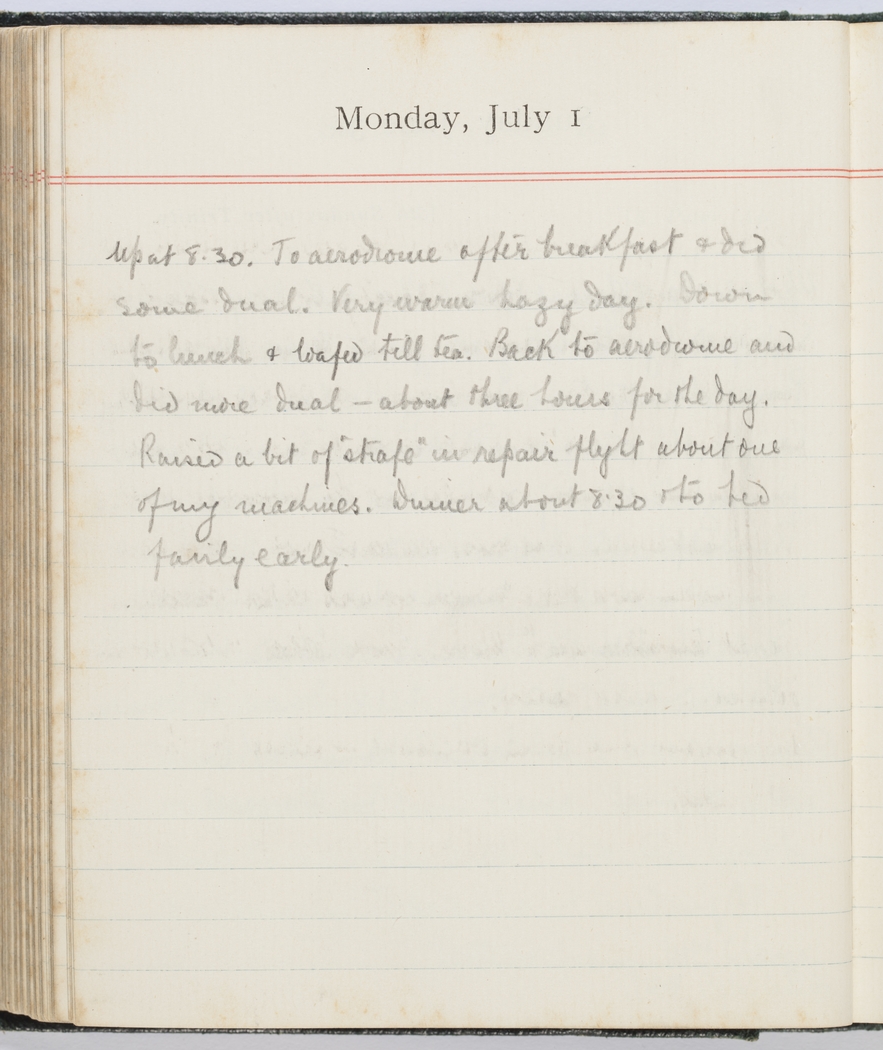 Monday, July 1
Up at 8.30. To aerodrome after breakfast & did
some dual. Very warm hazy day. Down
to lunch & loafed till tea. Back to aerodrome and
did more dual — about three hours for the day.
Raised a bit of "strafe" in repair flight about one
of my machines. Dinner about 8.30 & to bed
fairly early.